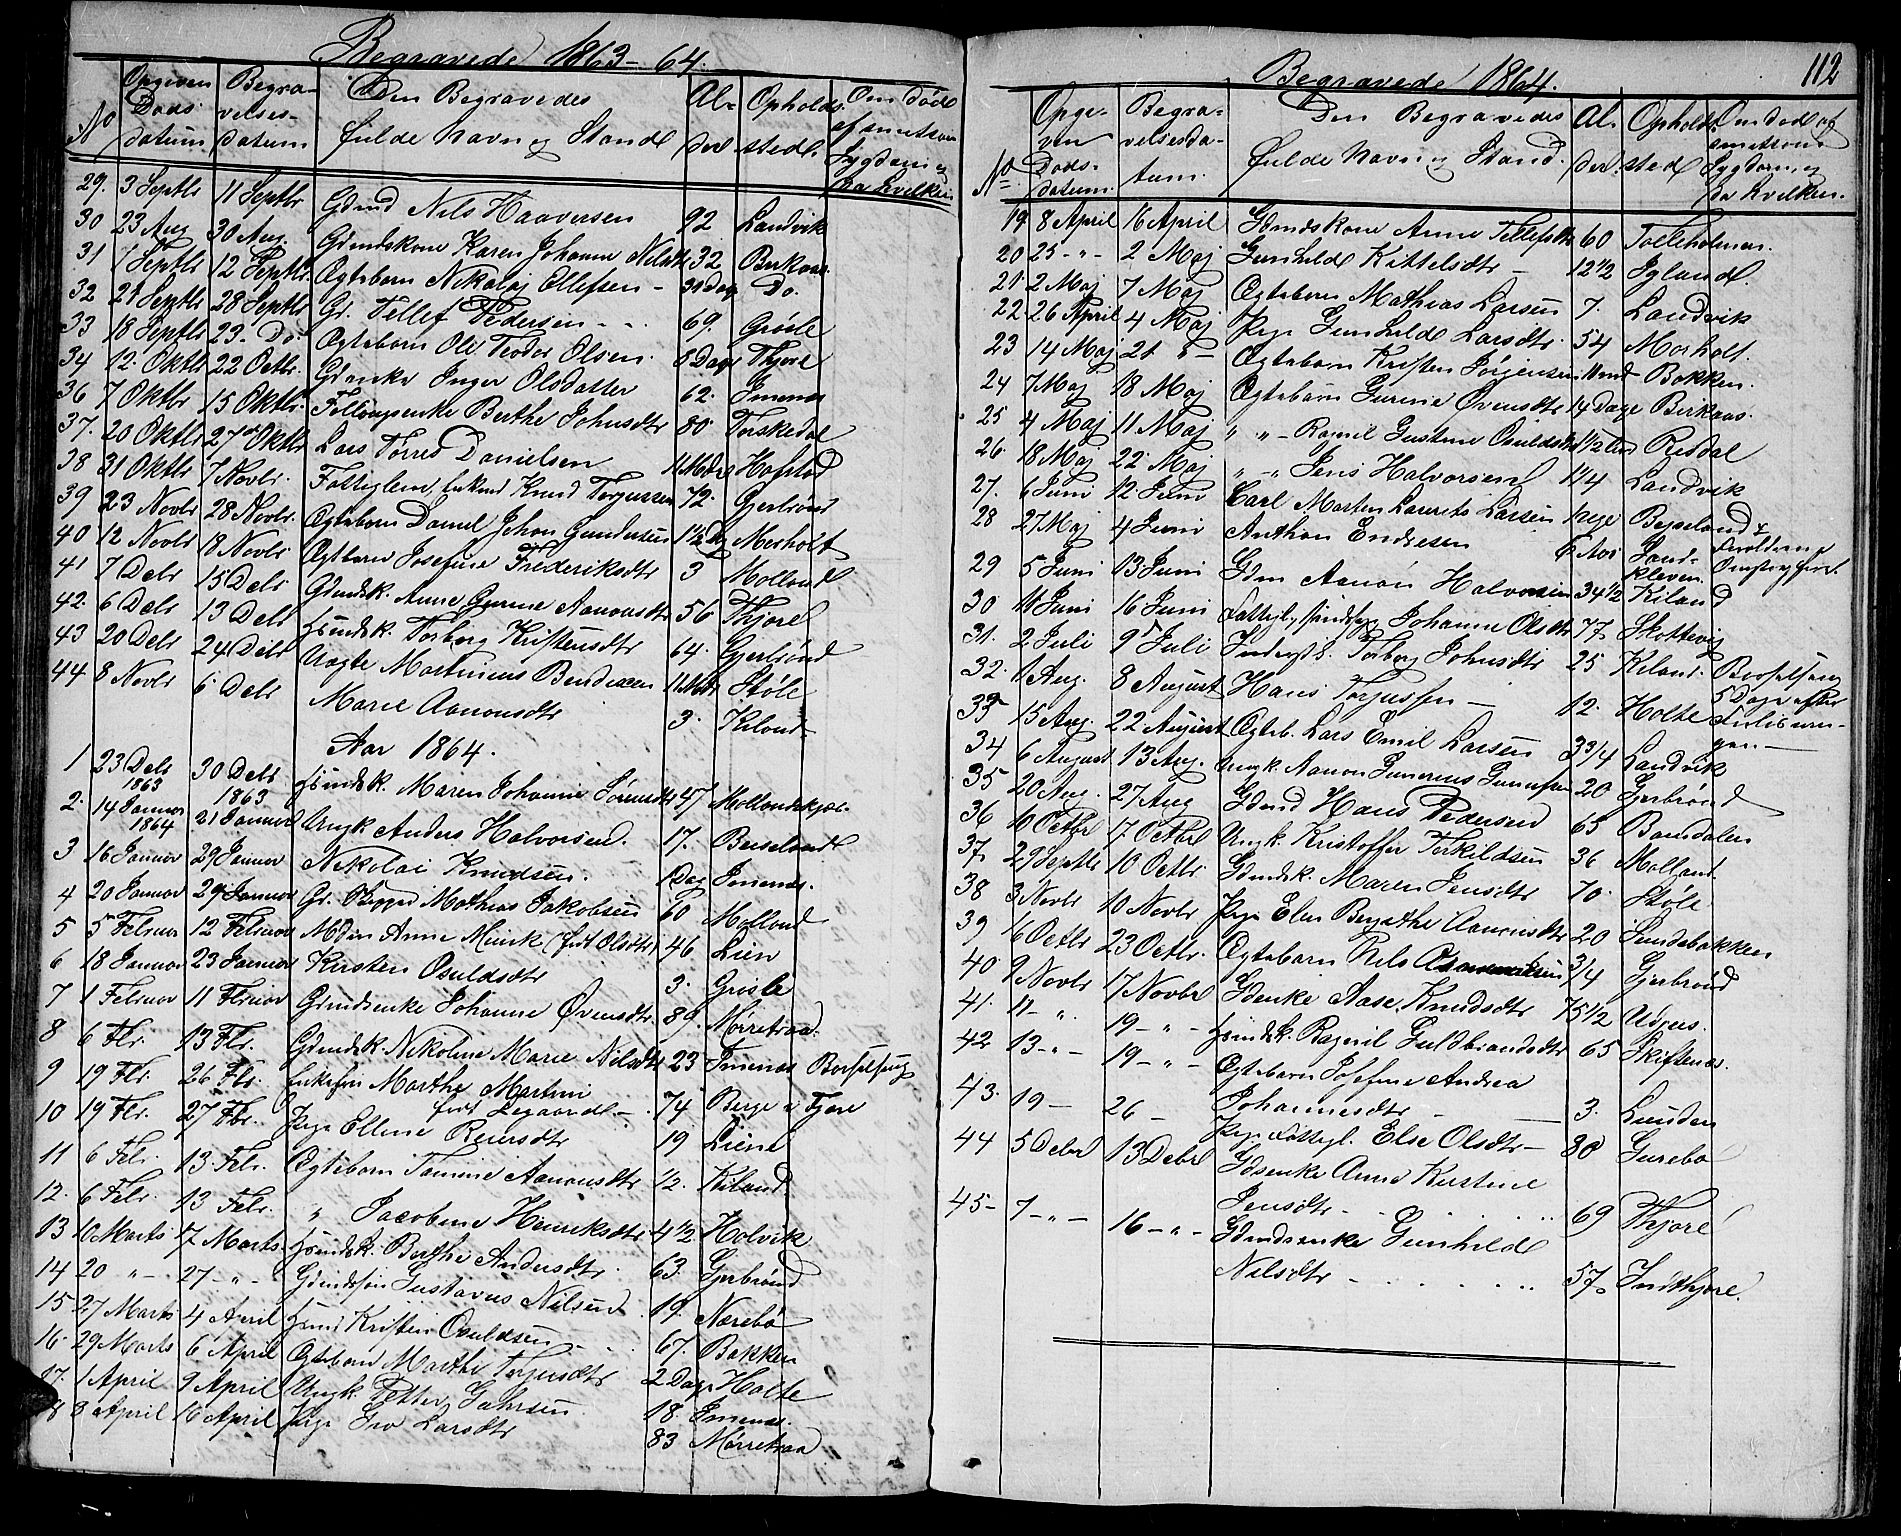 Begravede 1863-64.
No
Opgiven Døds datum
Begravelses datum
Den Begravedes fulde Navn og Stand
Alder
Opholdssted.
Om død af smitsom Sygdom og da hvilken
29. 3 Septbr 11 Septbr Gdmd Nils Haaversen 92 Landvik
30 23 Aug 30 Aug. Gdmdskone Karen Johanne Nilsdtr 32 Berkaas
31 7 Septbr 12 Septbr. Ægtebarn Nikolaj Ellefsen - 21 Dag Do.
32 21 Septbr 28 Septbr Gr. Tellef Pedersen - - 69. Grøsle
33 18 Septbr 23. Do. Ægtebarn Ole Teodor Olsen. 8 Dage Thjore
34 12. Oktbr 22 Octbr. Gdmenke Inger Olsdatter 62. Imenæs
36 7 Oktbr 15 Oktbr. Follougsenke Berthe Johnsdtr 80 Torskedal
37. 20 Oktbr 27 Oktbr Lars Torred Danielsen 11 Mdr Hofstad
38 31 Oktbr 7 Novbr. Fattiglem, Enkmd Knud Terjussen 72. Gjerbrønd
39 23 Novbr 28 Novbr. Ægtebarn Daniel Johan Gundersen Morholt
40 12 Novbr 18 Novbr Ægtebarn Josefine Frederiksdtr 3 Molland
41 7 Debr 15 Debr Gdmdsk. Anne Gurine Aanonsdtr 56 Thjore
42. 6 Debr 13 Debr Hsmdsk. Torborg Kristensdtr 64. Gjerbrønd
43 20 Debr 24 Debr Uægte Martinius Bendixen 11 Mdr Støle
44 8 Novbr 6 Debr Marie Aanonsdtr 3. Kiland
Aar 1864.
1 23 Debr 1863 30 Debr 1863 Hsmdsk. Maren Johanne Sørensdtr 47 Mollandskjæl-
2. 14 Januar 1864 21 Januar Ungk Anders Halvorsen. 17. Beiseland
3 16 Januar 29 Januar Nikolai Knudsen. 1 Dag Imenæs.
4 20 Januar 29 Januar Gr. Mathias Jakobsen 60 Molland
5 5 Februar 12 Februar Mdm Anne Munck (født Olsdtr) 46 Lien
6 18 Januar 23 Januar Kirsten Osuldsdtr 3. Grøsle
7 1 Februar 11 Februar Gdmdsenke Johanne Øvensdtr 89. Nørretraa.
8 6 Fbr. 13 Fbr. Gdmdsk. Nikoline Marie Nilsdtr 23 Imenæs Barselseng
9 19 Fbr. 26 Fbr. Enkefru Marthe Martini født Legaard - 74 Berge i Tjore
10 19 Fbr. 27 Fbr. Pige Ellene Reiersdtr 19 Liene
11 6 Febr. 13. Febr. Ægtebarn Tomine Aanonsdtr 1/2. Kiland
12. 6 Febr. 13 Febr. " Jacobine Henriksdtr 4 1/2 Holvik
13 10 Marts 17 Marts Hsmdsk. Berthe Andersdtr. 63. Gjerbrønd
14 20 " - 27 - " - Gdmdssøn Gustavus Nilsen 19. Nærebø
15. 27 Marts 4 April Hsmd Kristen Osuldsen 67. Bakken
16. 29 Marts 6 April Ægtebarn Marthe Terjusdtr 2 Dage Holte
17. 1 April 9 April Ungk. Petter Gahrsen 18. Imenæs.
18 3 April 16 April Pige Gro Larsdtr 83 Nørretraa
112
Begravede 1864.
No
Opgiven Dødsdatum.
Begravelsesdatum.
Den Begravedes fulde Navn og Stand.
Alder.
Opholdssted
Om død af smitsom Sygdom og da hvilken.
19 8 April 16 April Gdmdskone Anne Tellefsdtr 60 Tolleholmen.
20 25 - " - 2 Maj Gunhilde Kittelsdtr - 12 1/2 Igland.
21. 2 Maj 7 Maj Ægtebarn Mathias Larsen 7. Landvik
22 26 April 4 Maj Pige Gunhilde Larsdtr. 54 Morholt.
23 14 Maj 21 - " - Ægtebarn Kristen Jørgensen 11 Mnd Bakken.
24 7 Maj 18 Maj Ægtebarn Gurine Øvensdtr 14 Dage Birkaas.
25 4 Maj 11 Maj " " - Ragnil Gustine Osuldsdtr 1 1/2 Reddal
26. 18 Maj 22 Maj " - " Jens Halvorsen 1 1/4 Landvik
27. 6 Juni 12 Juni Carl Marten Laurits Larsen Beiseland
28 27 Maj 4 Juni Anthon Endresen 6 Aar Sandkleven.
29 5 Juni 13 Juni Gdm Aanon Halvorsen 34 1/2 Kiland
30 11 Juni 16 Juni Fattigl. Johanne Olsdtr 77 Skottevig
31. 2 Juli 9 Juli Torborg Johnsdtr 25 Kiland. Barselseng 5 Dage efter
32. 1 Aug. 8 August Hans Terjussen - 12. Holte
33 15 Aug. 22 August Ægteb. Lars Emil Larsen 3 3/4 Landvik
34 6 August 13 Aug. Ungk. Aanon Gunerius Gunufsen 20 Gjerbrønd
35 20 Aug. 27 Aug Gdmd Hans Pedersen 65 Bamdalen
36 10 Octbr 17 Octbr Ungk. Kristoffer Terkildsen 36 Molland
37 29 Septbr 10 Octbr Gdmdsk. Maren Jensdtr 70. Støle
38 3 Novbr 10 Novbr Pige Elen Bergithe Aanonsdtr 20 Sundebakken
39 16 Octbr 23 Octbr. Ægtebarn Nils 3/4 Gjerbrønd
40 9 Novbr 17 Novbr Gdenke Aase Knudsdtr 75 1/2 Udgus.
41. 11 - " . 19 - " - Hsmdsk. Ragnil Guldbrandsdtr 65 Skiftenæs.
42 13 - " - 19 - " - Ægtebarn Josefine Andrea Johannesdtr - 3. Lunden
43. 19 - 26 - Pige Fattigl. Else Olsdtr - 80 Gurebo
44 5 Debr 13 Debr Gdsenke Anne Kirstine Jensdtr - 69 Thjore
45 - 7 - " - 16 - " - Gdmdsenke Gunhild Nilsdtr 57. Indthjore.